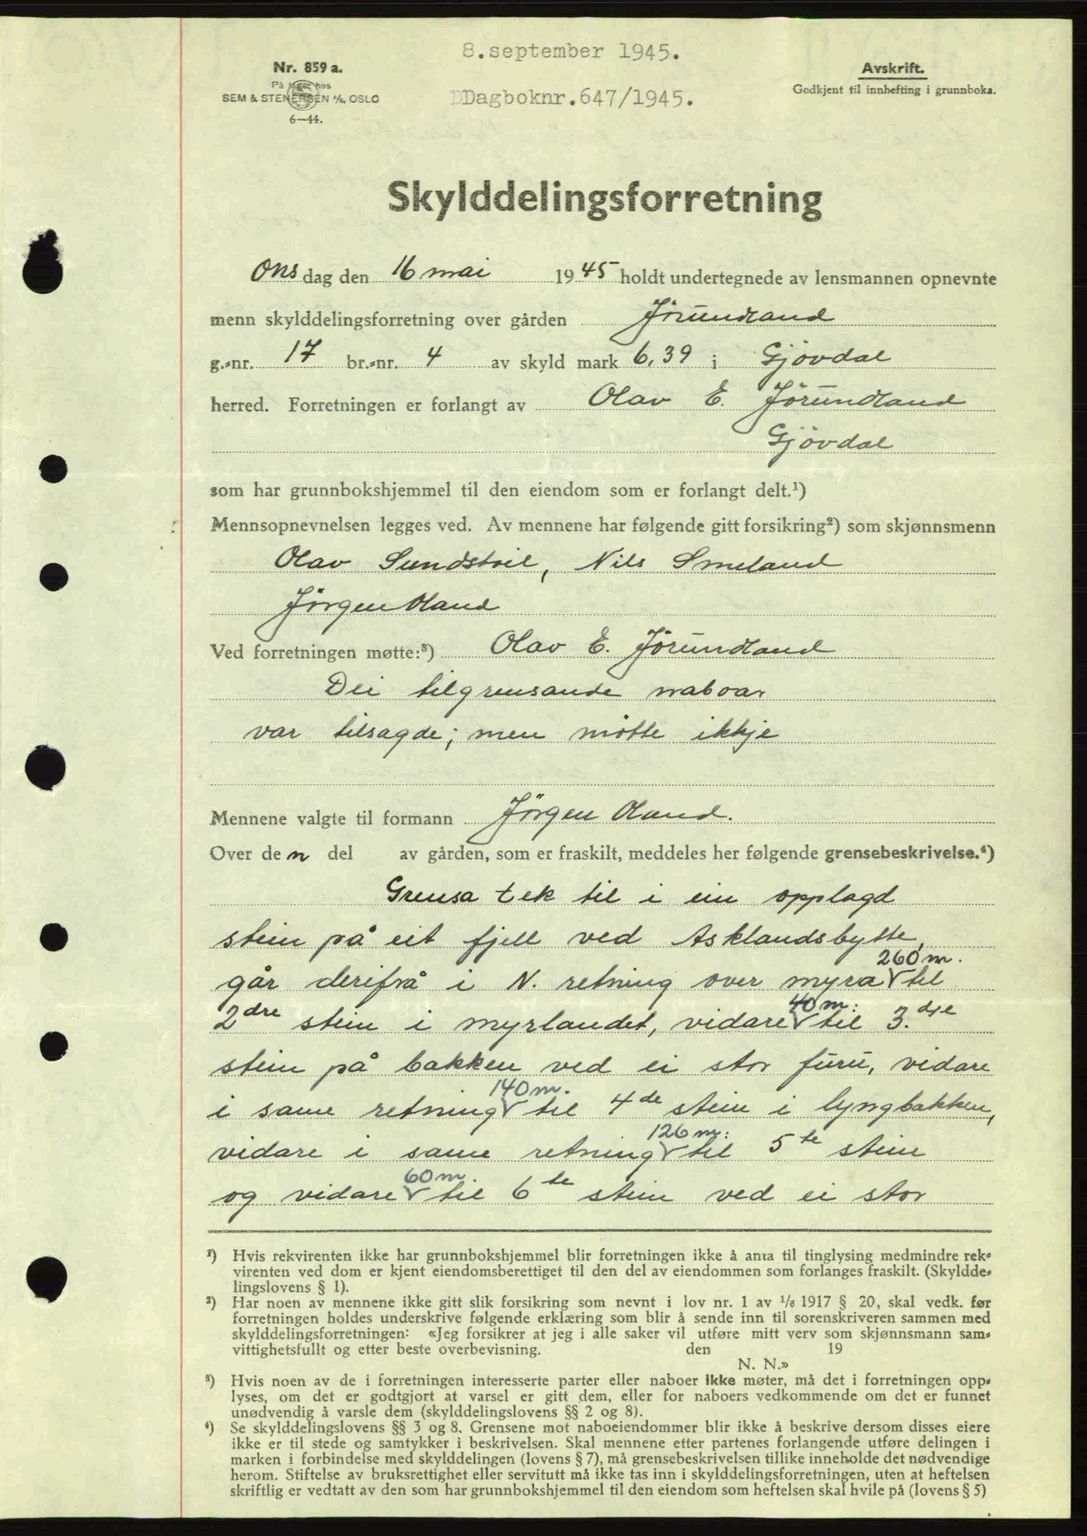 8.september 1945.
Nr. 859 a.
På lager hos
SEM & STENERSEN A/S, OSLO
6—44.
Dagboknr.647/1945.
Avskrift.
Godkjent til innhefting i grunnboka.
Skylddelingsforretning
Onsdag den 16 mai 1945 holdt undertegnede av lensmannen opnevnte
menn skylddelingsforretning over gården Jörundland
g.-nr. 17 br.-nr. 4 av skyld mark 6,39 i Gjövdal
herred. Forretningen er forlangt av Olav E. Jörundland
Gjövdal
som har grunnbokshjemmel til den eiendom som er forlangt delt.¹)
Mennsopnevnelsen legges ved. Av mennene har følgende gitt forsikring²) som skjønnsmenn
Olav Sundstöil, Nils Smeland
Jörgen Oland
Ved forretningen møtte:³) Olav E. Jörundland
Dei tilgrensande naboar
var tilsagde; men mötte ikkje
Mennene valgte til formann Jörgen Oland.
Over den del av gården, som er fraskilt, meddeles her følgende grensebeskrivelse.⁴)
Grensa tek til i ein opplagd
stein på eit fjell ved Asklandsbytte,
går derifrå i N. retning over myra 260 m. til
2dre stein i myrlandet, vidare 40 m: til 3.dje
stein på bakken ved ei stor furu, vidare
i same retning 140 m. til 4de stein i lyngbakken,
vidare i same retning 126 m: til 5te stein
og vidare 60 m til 6te stein ved ei stor
¹) Hvis rekvirenten ikke har grunnbokshjemmel blir forretningen ikke å anta til tinglysing medmindre rek-
virenten ved dom er kjent eiendomsberettiget til den del av eiendommen som forlanges fraskilt. (Skyldde-
lingslovens § 1).
²) Har noen av mennene ikke gitt slik forsikring som nevnt i lov nr. 1 av 1/6 1917 § 20, skal vedk. før
forretningen holdes underskrive følgende erklæring som blir å sende inn til sorenskriveren sammen med
skylddelingsforretningen: «Jeg forsikrer at jeg i alle saker vil utføre mitt verv som skjønnsmann sam-
vittighetsfullt og etter beste overbevisning. den 19
N. N.»
³) Hvis noen av de i forretningen interesserte parter eller naboer ikke møter, må det i forretningen opp-
lyses, om det er godtgjort at varsel er gitt dem, eller for naboers vedkommende om det er funnet
unødvendig å varsle dem (skylddelingslovens §§ 2 og 8).
⁴) Se skylddelingslovens §§ 3 og 8. Grensene mot naboeiendommer blir ikke å beskrive dersom disses eiere
ikke er til stede og samtykker i beskrivelsen. Skal mennene etter partenes forlangende utføre delingen i
marken i forbindelse med skylddelingen (lovens § 7), må grensebeskrivelsen tillike inneholde det nødvendige
herom. Stiftelse av bruksrettighet eller servitutt må ikke tas inn i skylddelingsforretningen, uten at heftelsen
skriftlig er vedtatt av den som har grunnbokshjemmel til den eiendom som heftelsen skal hvile på (lovens § 5)